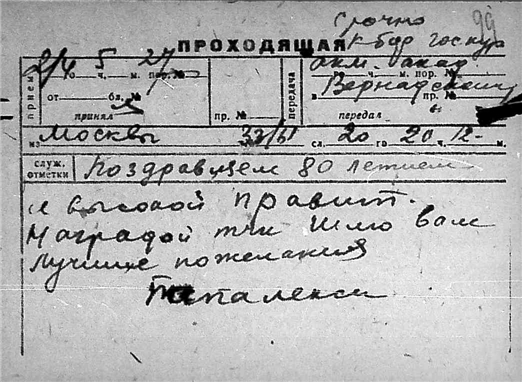 Срочно 99
ПРОХОДЯЩАЯ к-бор госкур
прием 2/4 5 ч. 27 м. пор. № передача акм. акад
ч. м. пор. №
от бл. № пр. № в Вернадскому р. №
принял передал
из Москвы 33/61 сл. 20 го 20 ч. 12 м.
служ. отметки Поздравляем 80 летием
и высокой правит.
Наградой тчк Шлю вам
лучшие пожелания
Папалекси